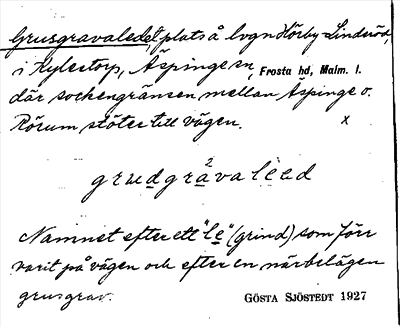 Grusgravaledet, plats å lvgn Hörby-Linderöd,
i Kylestorp, Äspinge sn, Frosta hd, Malm. l.
där sockengränsen mellan Äspinge o.
Rörum stöter till vägen. x
grudgravaléad
Namnet efter ett "le" (grind) som förr
varit på vägen och efter en närbelägen
grusgrav. GÖSTA SJÖSTEDT 1927